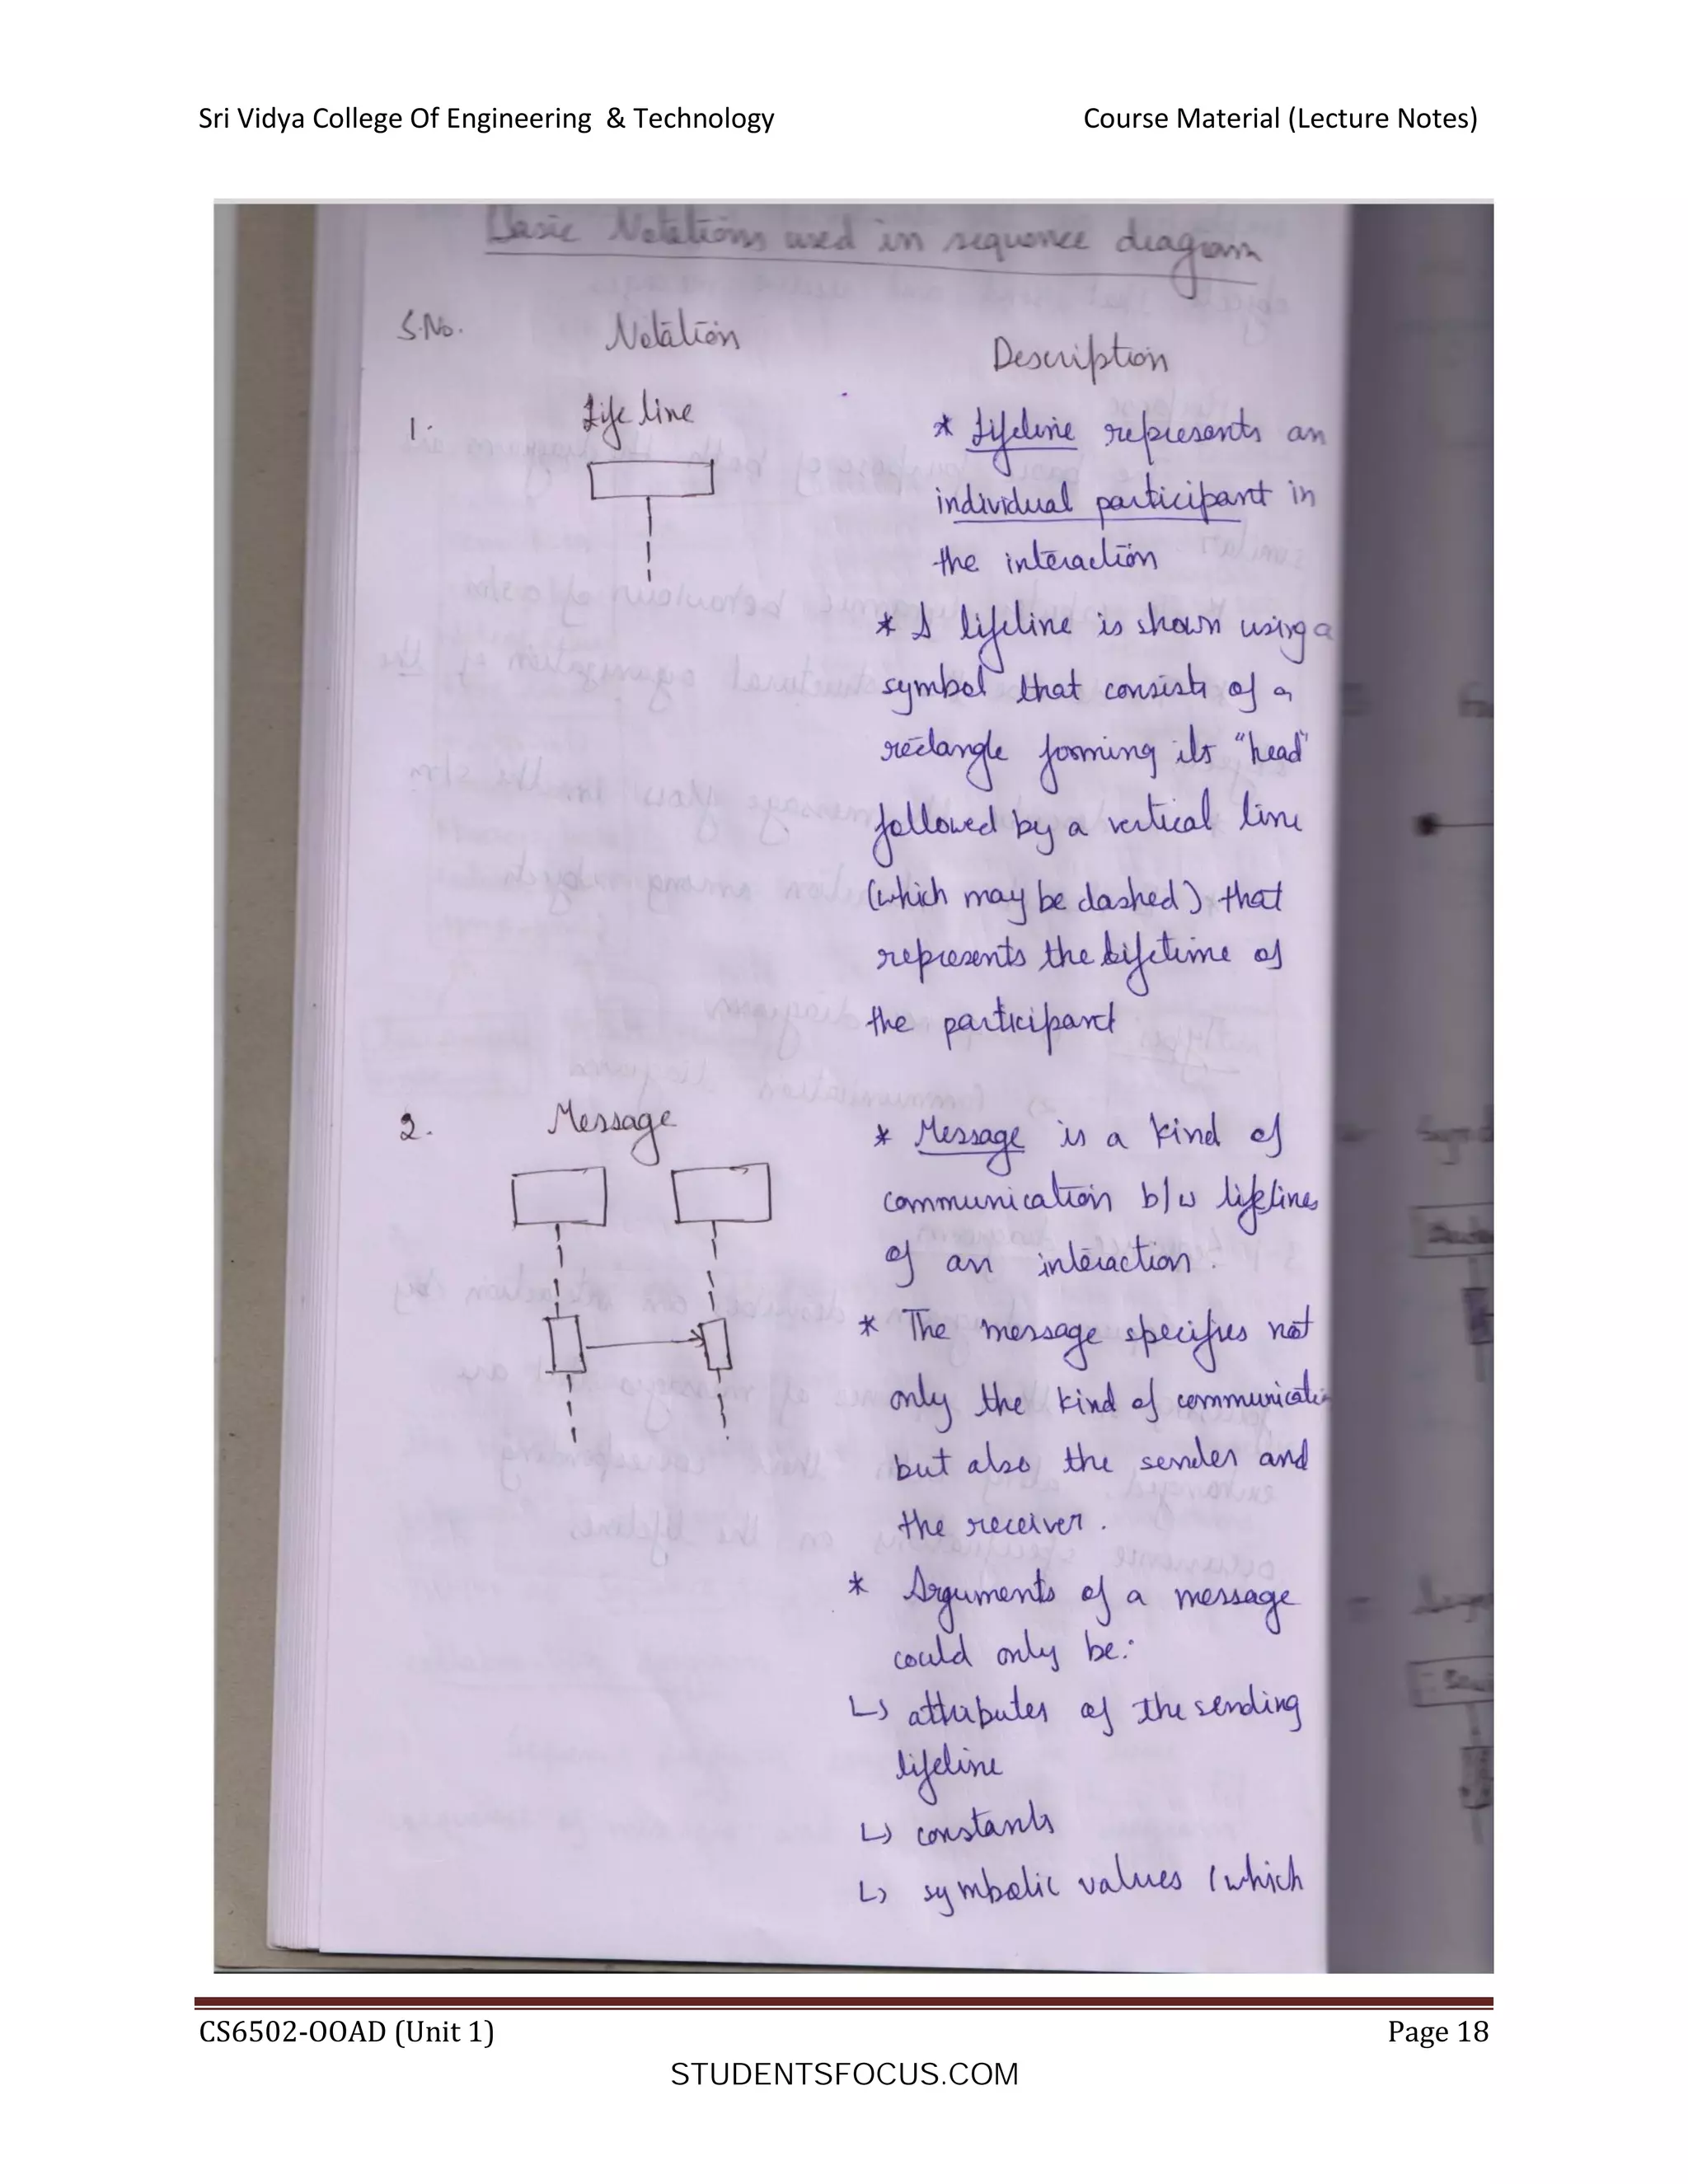 Sri Vidya College Of Engineering & Technology Course Material (Lecture Notes)
Basic Notations used in sequence diagram
S.No. Notation Description
1. Life line * Lifeline represents an
individual participant in
the interaction
* A lifeline is shown using a
symbol that consists of a
rectangle forming its "head"
followed by a vertical line
(which may be dashed) that
represents the lifetime of
the participant
2. Message * Message is a kind of
communication b/w lifelines
of an interaction.
* The message specifies not
only the kind of communication
but also the sender and
the receiver.
* Arguments of a message
could only be:
↳ attributes of the sending
lifeline
↳ constants
↳ symbolic values (which
CS6502-OOAD (Unit 1) Page 18
STUDENTSFOCUS.COM